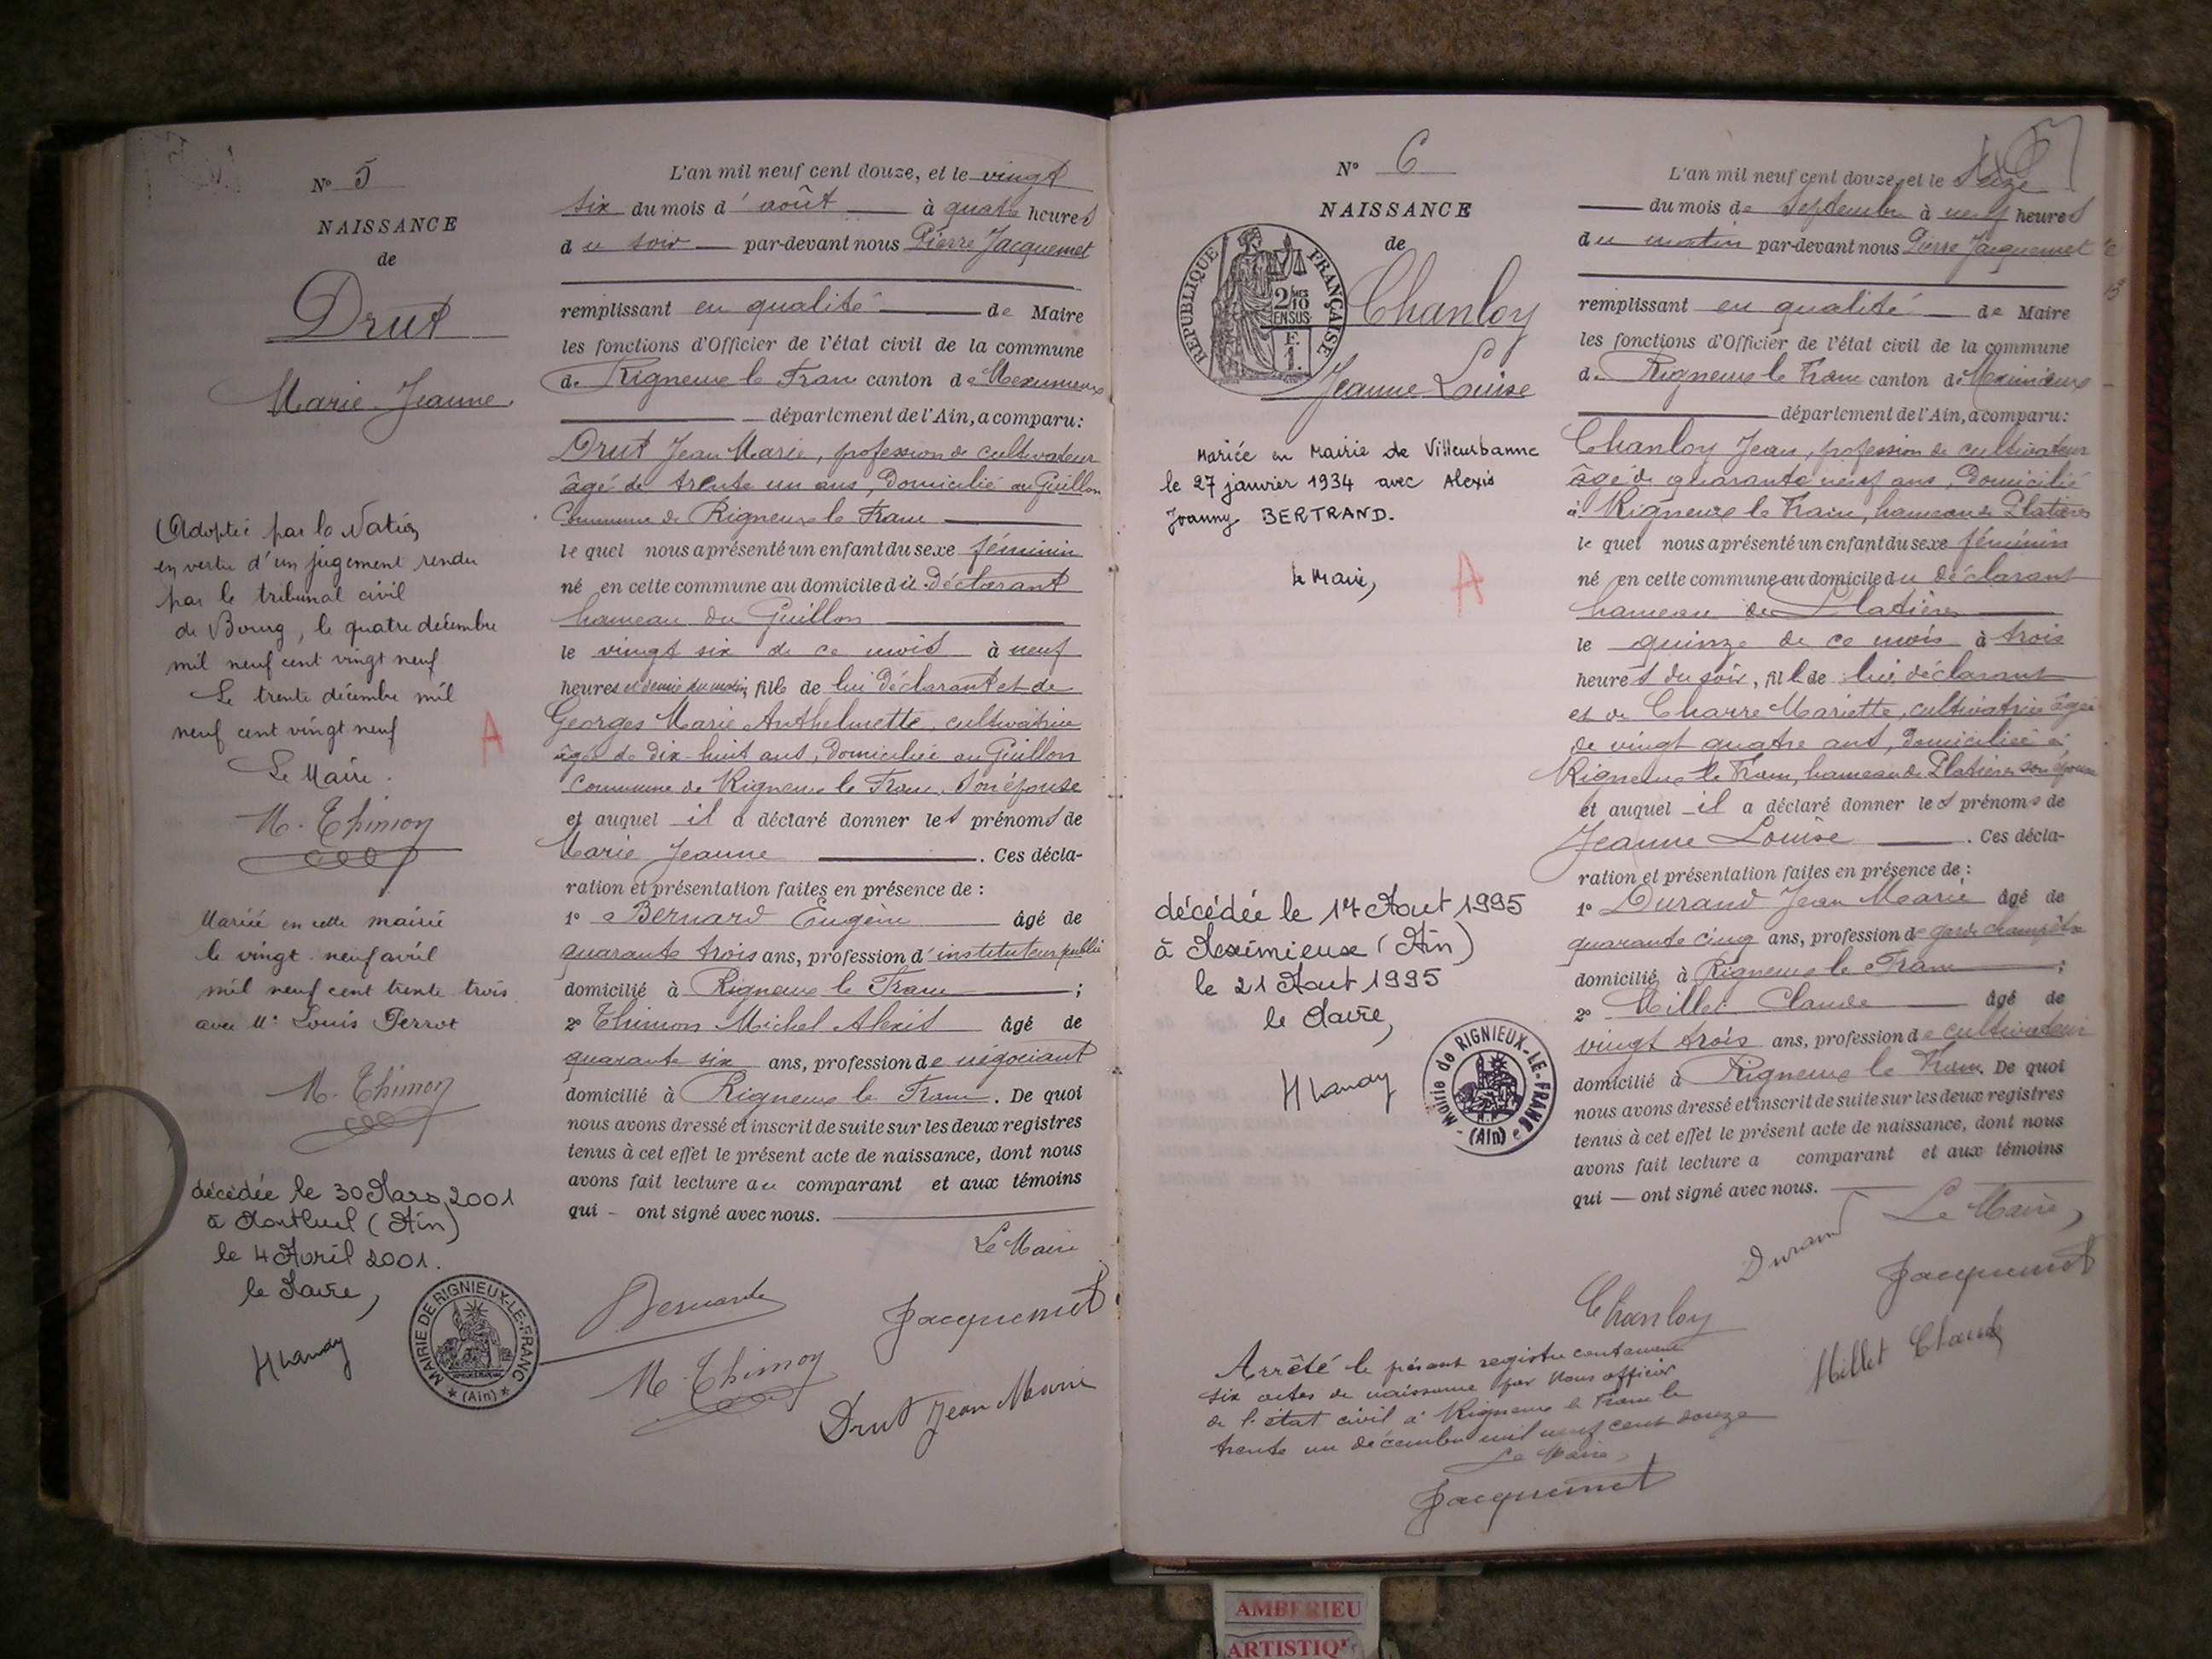 N° 5
NAISSANCE
de
Drut
Marie Jeanne.
Adoptée par la Nation
en vertu d'un jugement rendu
par le tribunal civil
de Bourg, le quatre décembre
mil neuf cent vingt neuf
Le trente décembre mil
neuf cent vingt neuf
Le Maire.
M. Thimon
A
Mariée en cette mairie
le vingt-neuf avril
mil neuf cent trente trois
avec Mr Louis Perrot
M. Thimon
décédée le 30 Mars 2001
à Montluel (Ain)
le 4 Avril 2001.
le Maire,
MAIRIE DE RIGNIEUX-LE-FRANC
* (Ain) *
L'an mil neuf cent douze, et le vingt
six du mois d'août à quatre heures
du soir par-devant nous Pierre Jacquemet
remplissant en qualité de Maire
les fonctions d'Officier de l'état civil de la commune
de Rigneux le Franc canton de Meximieux
département de l'Ain, a comparu:
Drut Jean Marie, profession de cultivateur
âgé de trente un ans, domicilié au Guillon
Commune de Rigneux le Franc
lequel nous a présenté un enfant du sexe féminin
né en cette commune au domicile du déclarant
hameau du Guillon
le vingt six de ce mois à neuf
heures et demie du matin, fille de lui déclarant et de
Georges Marie Anthelmette, cultivatrice
âgée de dix-huit ans, domiciliée au Guillon
Commune de Rigneux le Franc, son épouse
et auquel il a déclaré donner les prénoms de
Marie Jeanne. Ces décla-
ration et présentation faites en présence de :
1° Bernard Eugène âgé de
quarante trois ans, profession d'instituteur public
domicilié à Rigneux le Franc ;
2° Thimon Michel Alexis âgé de
quarante six ans, profession de négociant
domicilié à Rigneux le Franc. De quoi
nous avons dressé et inscrit de suite sur les deux registres
tenus à cet effet le présent acte de naissance, dont nous
avons fait lecture au comparant et aux témoins
qui - ont signé avec nous.
Le Maire
Bernard
Jacquemet
M. Thimon
Drut Jean Marie
N° 6
NAISSANCE
de
Chanloy
Jeanne Louise
RÉPUBLIQUE FRANÇAISE
2/10MES
EN SUS
F.
1.
Mariée en Mairie de Villeurbanne
le 27 janvier 1934 avec Alexis
Joanny BERTRAND.
Le Maire,
A
décédée le 17 Aout 1995
à Meximieux (Ain)
le 21 Aout 1995
le Maire,
Mairie de RIGNIEUX-LE-FRANC
(Ain)
L'an mil neuf cent douze, et le seize
du mois de septembre à neuf heures
du matin par-devant nous Pierre Jacquemet
remplissant en qualité de Maire
les fonctions d'Officier de l'état civil de la commune
de Rigneux le Franc canton de Meximieux
département de l'Ain, a comparu:
Chanloy Jean, profession de cultivateur
âgé de quarante neuf ans, domicilié
à Rigneux le Franc, hameau de Platières
lequel nous a présenté un enfant du sexe féminin
né en cette commune au domicile du déclarant
hameau de Platières
le quinze de ce mois à trois
heures du soir, fille de lui déclarant
et de Charre Mariette, cultivatrice âgée
de vingt quatre ans, domiciliée à
Rigneux le Franc, hameau de Platières son épouse
et auquel il a déclaré donner les prénoms de
Jeanne Louise. Ces décla-
ration et présentation faites en présence de :
1° Durand Jean Marie âgé de
quarante cinq ans, profession de garde champêtre
domicilié à Rigneux le Franc ;
2° Millet Claude âgé de
vingt trois ans, profession de cultivateur
domicilié à Rigneux le Franc. De quoi
nous avons dressé et inscrit de suite sur les deux registres
tenus à cet effet le présent acte de naissance, dont nous
avons fait lecture a comparant et aux témoins
qui — ont signé avec nous.
Le Maire,
Durand
Jacquemet
Chanloy
Millet Claude
Arrêté le présent registre contenant
six actes de naissance par Nous officier
de l'état civil à Rigneux le Franc le
trente un décembre mil neuf cent douze
Le Maire,
Jacquemet
AMBERIEU
ARTISTIQ